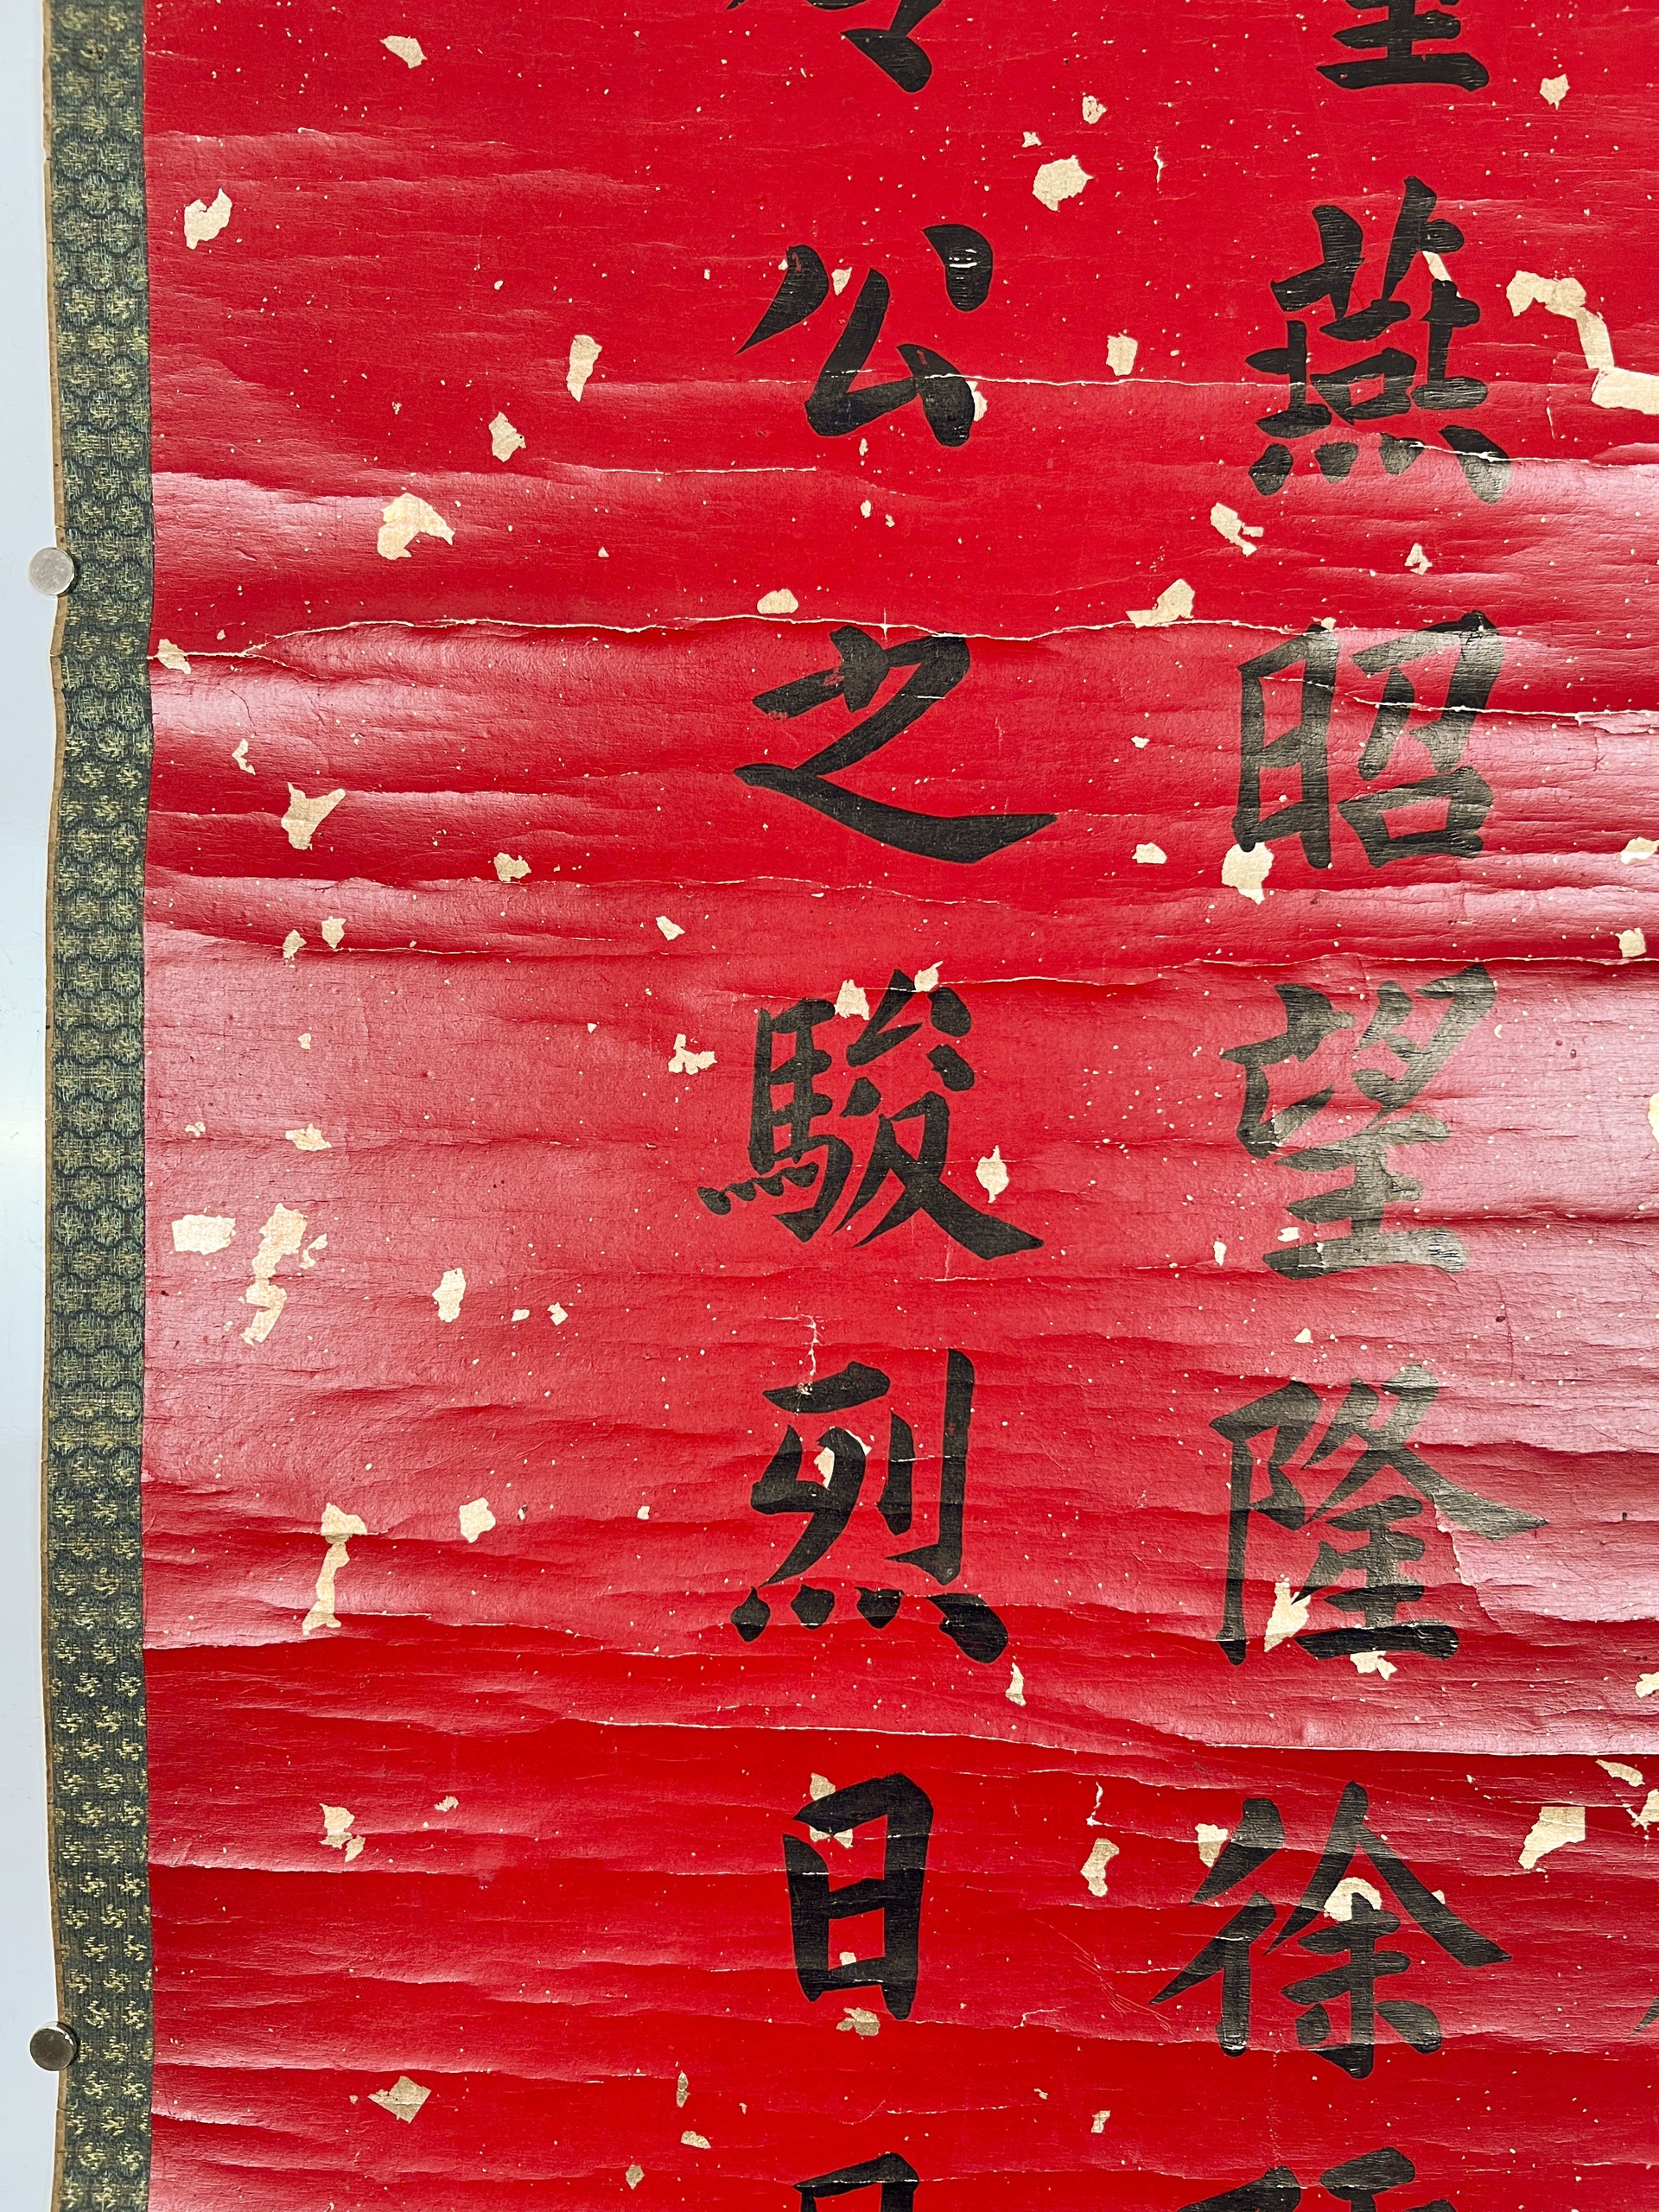 燕昭望隆徐
公之駿烈日